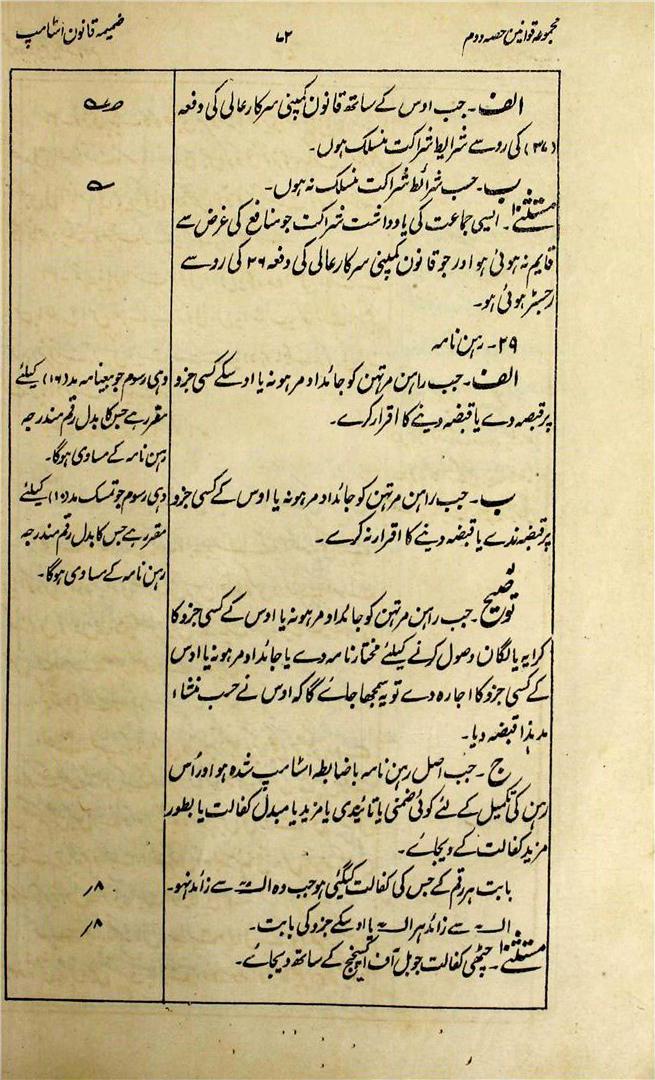 مجموعہ قوانین حصہ دوم
۷۲
ضمیمہ قانون اسٹامپ
الف۔ جب اوس کے ساتھ قانون کمپنی سرکار عالی کی دفعہ
(۳۷) کی روسے شرایط شراکت منسلک ہوں۔
ب۔ جب شرائط شراکت منسلک نہ ہوں۔
مستثنیٰ۔ ایسی جماعت کی یادداشت شراکت جو منافع کی غرض سے
قایم نہ ہوئی ہو اور جو قانون کمپنی سرکار عالی کی دفعہ ۲۶ کی روسے
رجسٹر ہوئی ہو۔
۲۹۔ رہن نامہ
الف۔ جب راہن مرتہن کو جائداد مرہونہ یا اوسکے کسی جزو
پر قبضہ دے یا قبضہ دینے کا اقرار کرے۔
وہی رسوم جو بیعنامہ مد (۱۶) کیلئے
مقرر ہے جس کا بدل رقم مندرجہ
رہن نامہ کے مساوی ہوگا۔
ب۔ جب راہن مرتہن کو جائداد مرہونہ یا اوس کے کسی جزو
پر قبضہ ندے یا قبضہ دینے کا اقرار نہ کرے۔
وہی رسوم جو تمسک مد (۱۰) کیلئے
مقرر ہے جس کا بدل رقم مندرجہ
رہن نامہ کے مساوی ہوگا۔
توضیح۔ جب راہن مرتہن کو جائداد مرہونہ یا اوس کے کسی جزو کا
کرایہ یا لگان وصول کرنے کیلئے مختار نامہ دے یا جائداد مرہونہ یا اوس
کے کسی جزو کا اجارہ دے تو یہ سمجھا جاے گا کہ اوس نے حسب منشاء
مد ہذا قبضہ دیا۔
ج۔ جب اصل رہن نامہ باضابطہ اسٹامپ شدہ ہو اور اُس
رہن کی تکمیل کے لئے کوئی ضمنی یا تائیدی یا مزید یا مبدل کفالت یا بطور
مزید کفالت کے دیجاے۔
بابت ہر رقم کے جس کی کفالت کیگئی ہو جب وہ سے زائد نہو۔
۸؍
سے زائد ہر یا اوسکے جزو کی بابت۔
۸؍
مستثنیٰ۔ چٹھی کفالت جو بل آف اکسچینج کے ساتھ دیجاے۔